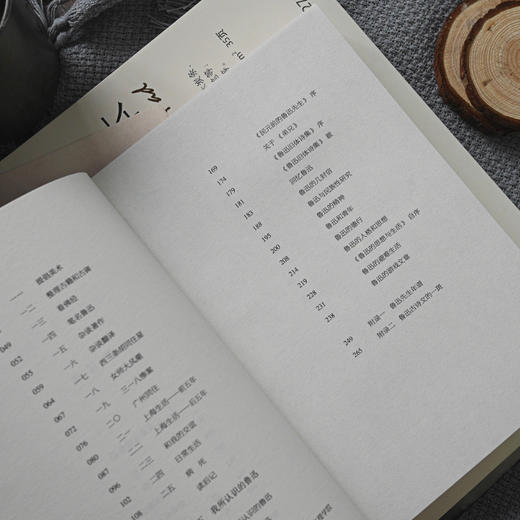 一一 提倡美术
一二 整理古籍和古碑
049 一三 看佛经
052 一四 笔名鲁迅
055 一五 杂谈著作
059 一六 杂谈翻译
064 一七 西三条胡同住屋
067 一八 女师大风潮
072 一九 三一八惨案
076 二〇 广州同住
080 二一 上海生活——前五年
087 二二 上海生活——后五年
096 二三 和我的交谊
102 二四 日常生活
108 二五 病死
读后记
我所认识的鲁迅
169 《民元前的鲁迅先生》序
174 关于《弟兄》
179 《鲁迅旧体诗集》序
181 《鲁迅旧体诗集》跋
183 回忆鲁迅
188 鲁迅的几封信
195 鲁迅与民族性研究
200 鲁迅的精神
208 鲁迅和青年
214 鲁迅的德行
219 鲁迅的人格和思想
228 《鲁迅的思想与生活》自序
231 鲁迅的避难生活
238 鲁迅的游戏文章
249 附录一 鲁迅先生年谱
265 附录二 鲁迅古诗文的一斑
27
35页